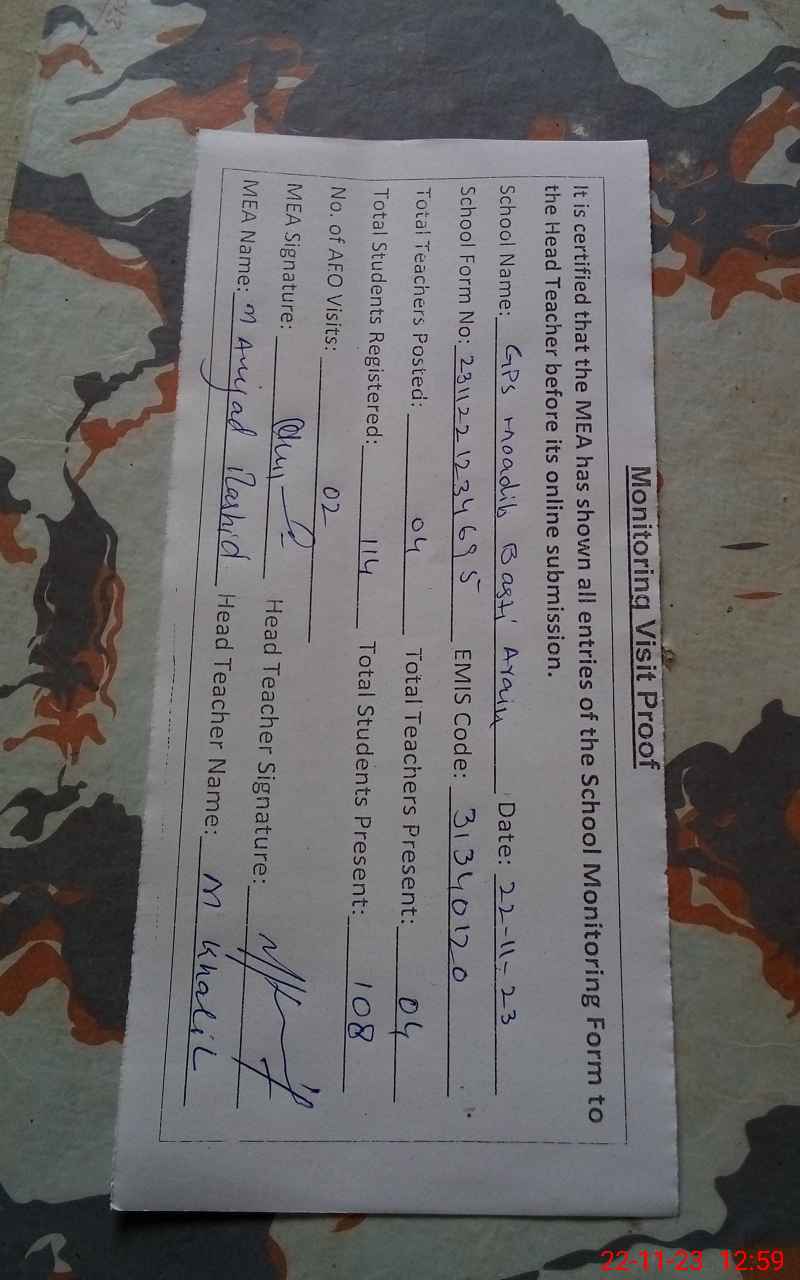 Monitoring Visit Proof
It is certified that the MEA has shown all entries of the School Monitoring Form to
the Head Teacher before its online submission.
School Name: GPS Moadib Basti Arain Date: 22-11-23
School Form No: 231122123469 5 EMIS Code: 31340120
Total Teachers Posted: 04 Total Teachers Present: 04
Total Students Registered: 114 Total Students Present: 108
No. of AEO Visits: 02
MEA Signature: Head Teacher Signature:
MEA Name: M Amjad Rashid Head Teacher Name: M Khalil
22-11-23 12:59